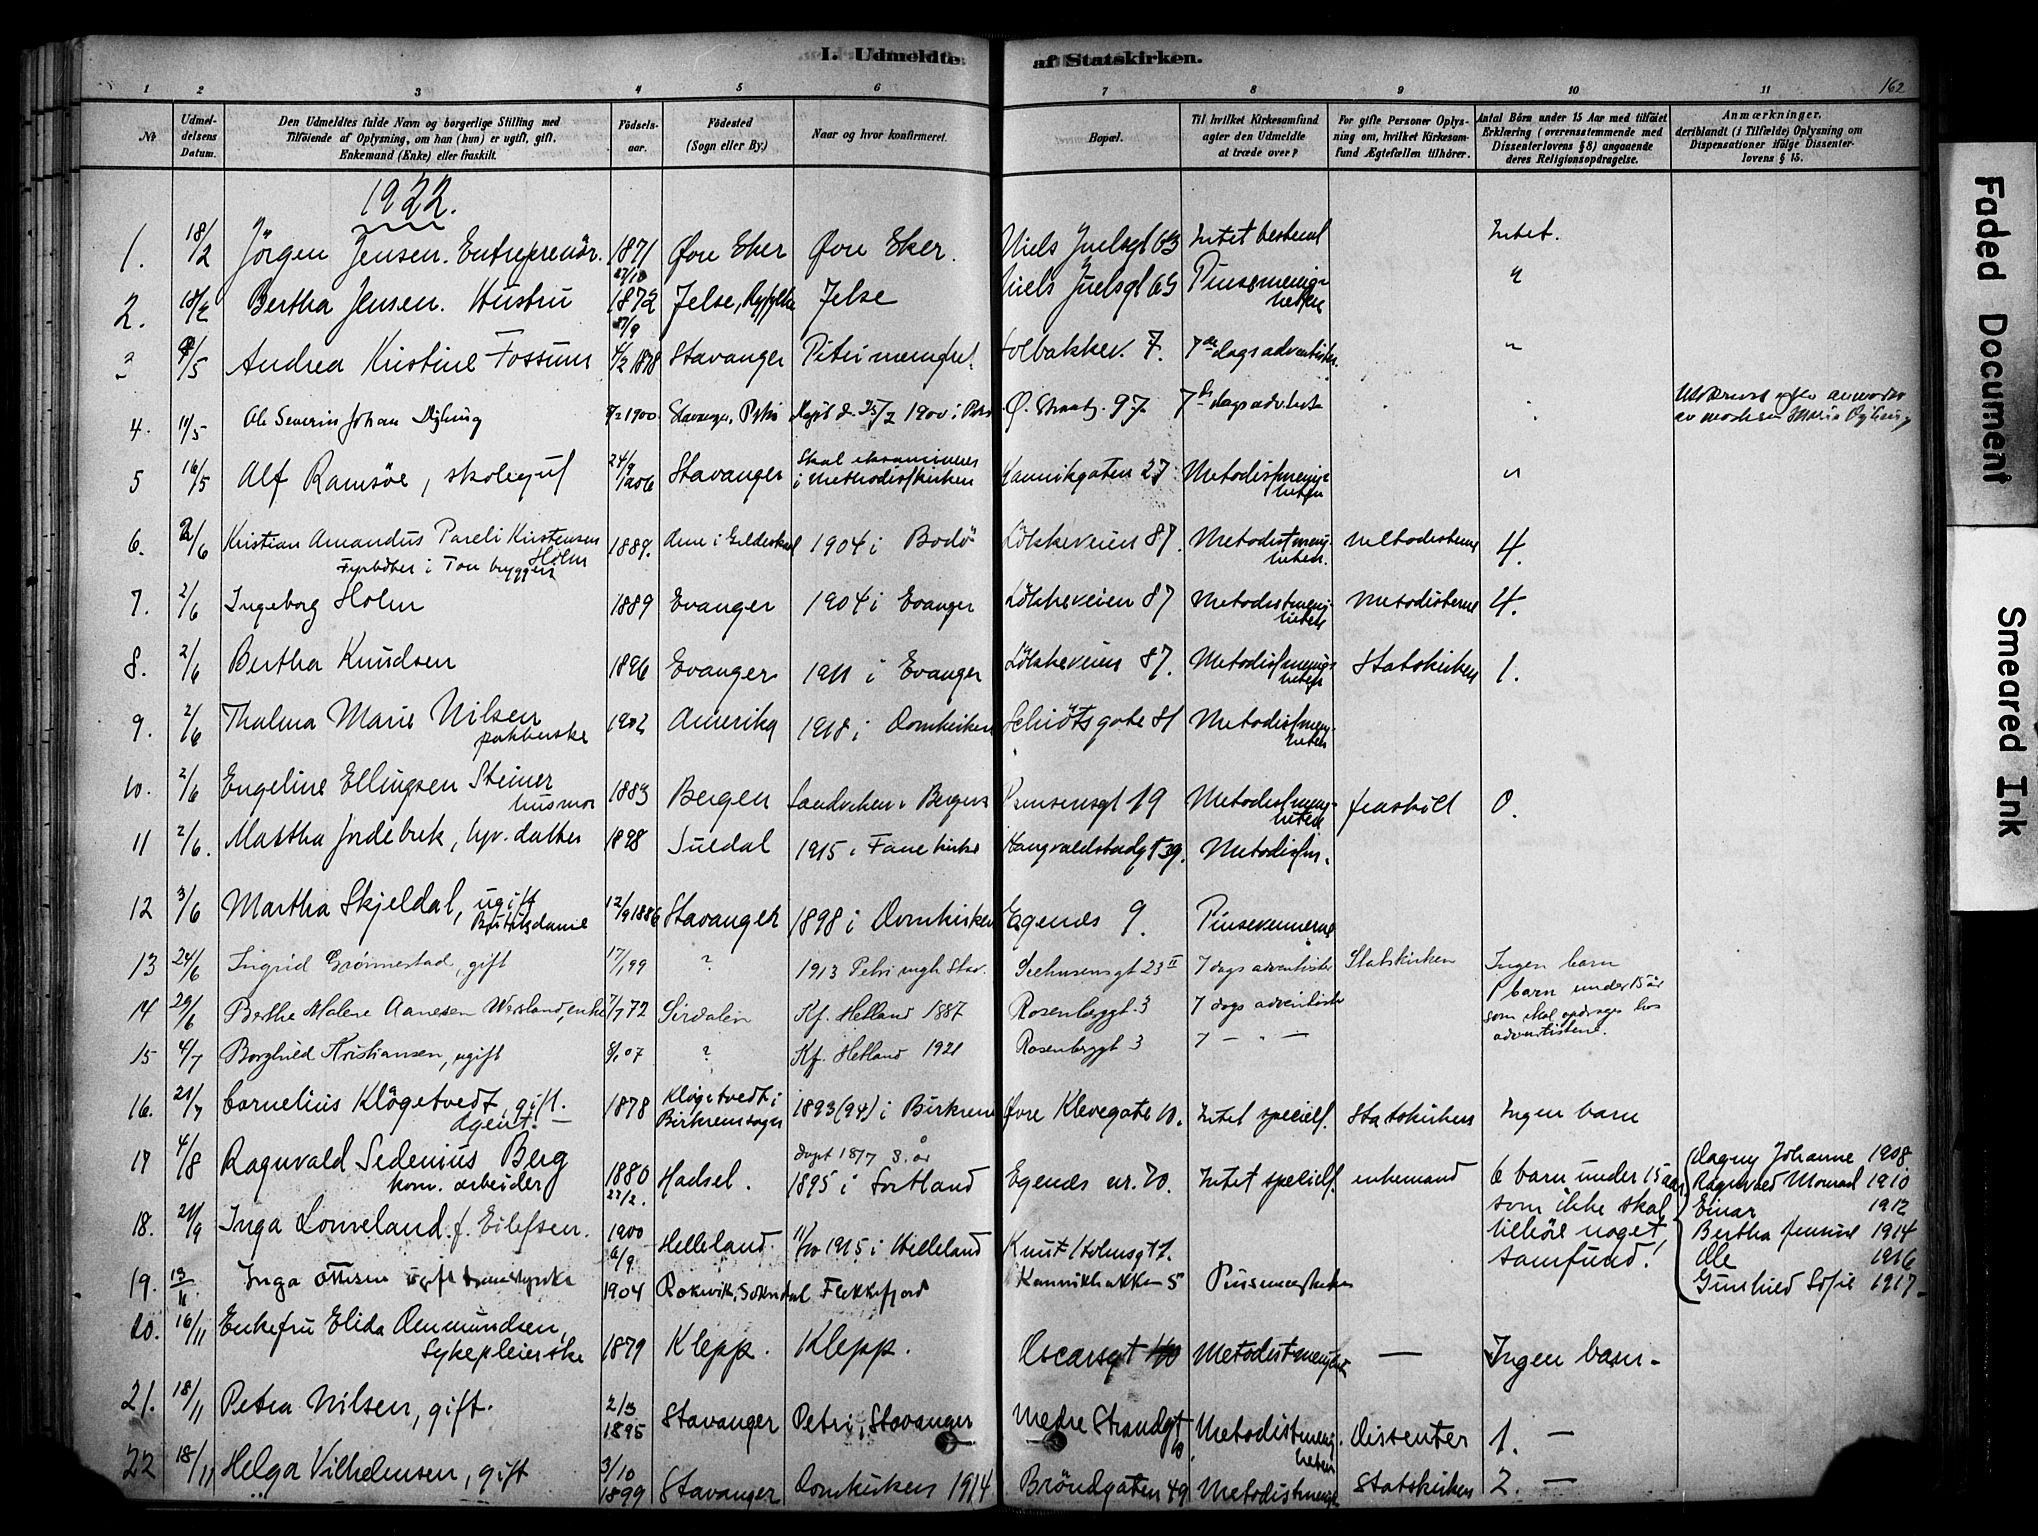 I. Udmeldte af Statskirken.
162
1 2 3 4 5 6 7 8 9 10 11
Nr.
Udmeldelsens Datum.
Den Udmeldtes fulde Navn og borgerlige Stilling med
Tilföiende af Oplysning, om han (hun) er ugift, gift,
Enkemand (Enke) eller fraskilt.
Födselsaar.
Födested
(Sogn eller By.)
Naar og hvor konfirmeret.
Bopæl.
Til hvilket Kirkesamfund
agter den Udmeldte
at træde over?
For gifte Personer Oplysning om, hvilket Kirkesamfund Ægtefællen tilhörer.
Antal Börn under 15 Aar med tilföiet
Erklæring (overensstemmende med
Dissenterlovens § 8) angaaende
deres Religionsopdragelse.
Anmærkninger,
deriblandt (i Tilfælde) Oplysning om
Dispensationer ifölge Dissenterlovens § 15.
1922.
1. 18/2 Jörgen Jensen. Entreprenör. 1871 27/10 Øvre Eker Øvre Eker. Niels Juelsgt 63 Intet bestemt Intet.
2. 18/2 Bertha Jensen. Hustru 1872 27/9 Jelse, Ryfylke Jelse Niels Juelsgt 63 Pinsemenigheten "
3 4/5 Andrea Kristine Fossum 4/2 1878 Stavanger Petri menighet. 7de dags adventister. "
4. 11/5 Ole Severin Johan 1900 Stavanger, Petri Døpt d. 25/2 1900 i Petri Ø. Strandg. 97. 7de dags adventist
5 16/5 Alf Ramsöe, skolegut 24/9 1906 Stavanger Skal eksamineres i Methodistkirken Kannikgaten 27 Metodistmenigheten "
6. 2/6 Kristian Amandus Pareli Kristensen Holm
Fyrböter i Tou bryggeri 1889. 1904 i Bodö Lökkeveien 87. Metodistmenigheten. Metodisterne 4.
7. 2/6 Ingeborg Holm 1889 Evanger 1904 i Evanger Lökkeveien 87 Metodistmenigheten Metodisterne 4.
8. 2/6 Bertha Knudsen 1896 Evanger 1911 i Evanger Lökkeveien 87. Metodistmenigheten Statskirken 1.
9. 2/6 Thalma Marie Nilsen
pakkerske 1902 Amerika 1918 i Domkirken Schiötsgate 81 Metodistmenigheten
10. 2/6 Engeline Ellingsen Steiner
husmor 1883 Bergen Sandviken i Bergen Metodistmenigheten fraskilt 0.
11 2/6. Martha Indebrek, hjv. datter 1898 Suldal 1915 i Fane kirke Metodistm.
12 3/6 Martha Skjeldal, ugift
Butiksdame 12/9 1886 Stavanger 1898 i Domkirken Egenes 9. Pinsevennerne
13 24/6 Ingrid Grønnestad, gift 17/1 99 ? 1913 Petri mgh Stav. Seehusensgt 23 II 7 dags adventister Statskirken Ingen barn
14 29/6 Berthe Malene Aanesen Wersland, enke 7/7 72 Sirdalen Kf. Hetland 1887 Rosenbrggt. 3 7 dags adventister 1 barn under 15 år
som skal opdrages hos
adventistene.
15 4/7 Borghild Kristiansen, ugift 07 ? Kf. Hetland 1921 Rosenbrggt 3 7 — " —
16. 21/7 Cornelius Klögetvedt, gift.
Agent. — 1878 Klögetvedt i
Birkrem sogn 1893 (94) i Birkrem Øvre Klevegate 10. Intet specielt. Statskirken Ingen barn
17 4/8 Ragnvald Sedenius Berg
kom. arbeider 1880 22/2. Hadsel. döpt 18/7 s. år
1895 i Fortland Egenes nr. 20. Intet specielt. enkemand 6 barn under 15 aar
som ikke skal
tilhöre noget
samfund!
Dagny Johanne 1908
Ragnvald Monrad 1910
Einar 1912
Bertha 1914
Ole 1916
Gunhild Sofie 1917.
18. 21/9 Inga Lomeland. f. Eilefsen. 1900 6/9 Helleland. 11/10 1915 i Helleland Knut Holmsgt 1.
19. 13/11 Inga Ottesen ugift 1904 Rekevik, Sokndal Flekkefjord Kannikbakken 5 Pinsemenigheten
20. 16/11 Enkefru Elida Aanmundsen,
Sykepleierske 1879 Klepp. Klepp. Oscarsgt Metodistmenigheten — Ingen barn —
21. 18/11 Petra Nilsen, gift. 2/3 1895 Stavanger Petri, Stavanger Nedre Strandgt 10. Metodistmenigheten Dissenter 1. —
22 18/11 Helga Vilhelmsen, gift 3/10 1899 Stavanger Domkirken 1914 Bröndgaten 49 Metodistmenigh. Statskirken 2. —
Faded Document
Smeared Ink